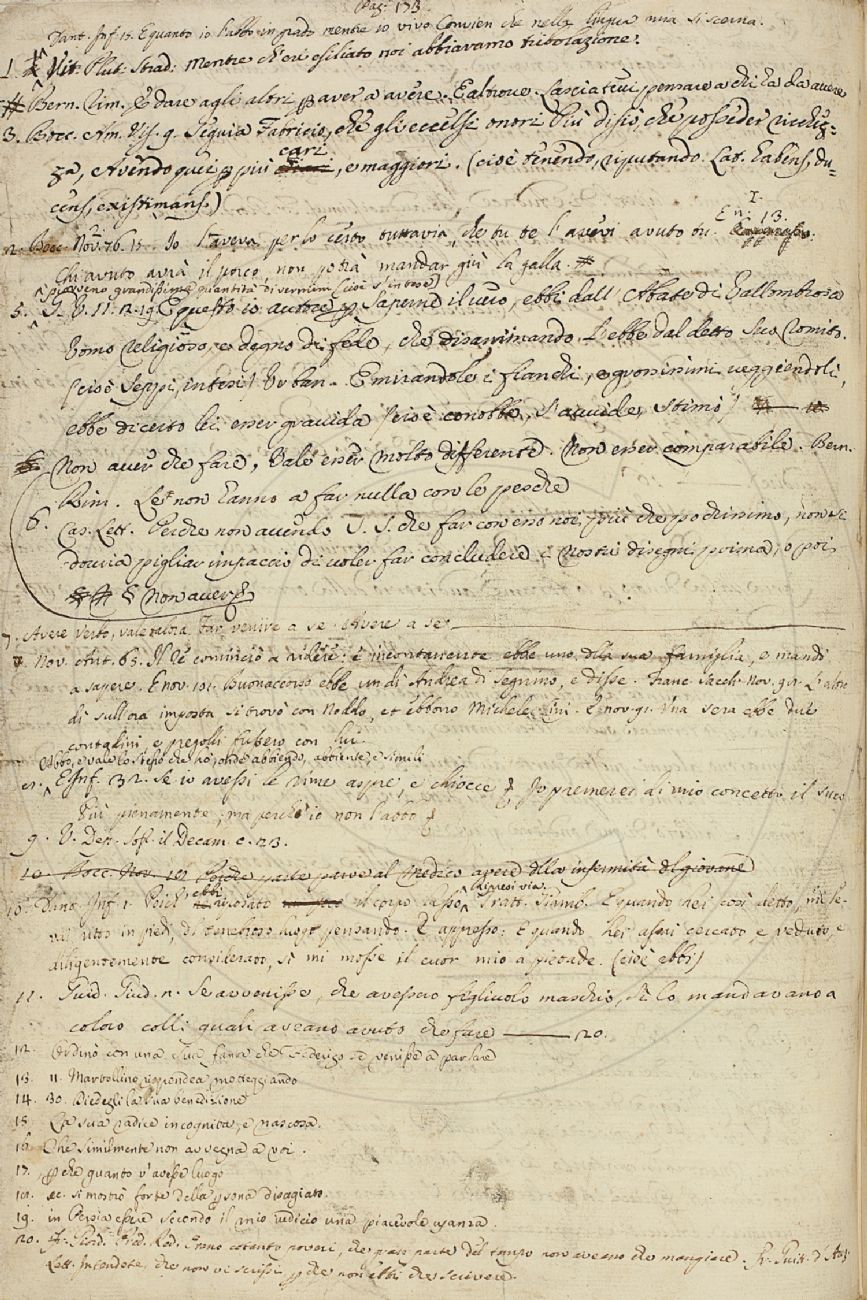 Pag: 173.
Dant. Inf. 15. E quanto io l'abbo in grado mentre io vivo Convien che nella lingua mia si scerna.
1. Vit: Plut: Strad: mentre ch'eri esiliato noi abbiavamo tribolazione.
Bern. Rim. È dare agli altri per aver a avere. Ealtrove. Lasciatevi pensare a chi ha da avere
3. Bocc. Am. Vis. 9. Seguia Fabricio, che gli eccelsi onori Più disiò, che posseder ricchez-
za, Avendo quei per più cari, e maggiori. (cioè tenendo, riputando. Lat. habens, du-
cens, existimans.)
2. Bocc. Nov. 76. 15. Io l'aveva per lo certo tuttavia, che tu te l'avevi avuto tu. E n: 13.
Chi avuto avrà il porco, non potrà mandar giù la galla.
piaveno grandissima quantità di vermini (cioè s'intese)
5. G. V. 11. 2. 19. E questo io autore per saperne il vero, ebbi dall'Abate di Vallombrosa
Uomo religioso, e degno di fede, che disaminando. L'ebbe dal detto suo romito.
(cioè seppi, intesi) Urban. E mirandole i fianchi, e grossissimi veggiendoli,
ebbe di certo lei esser gravida (cioè conobbe, s'avvide, stimò)
Non aver che fare, vale esser molto differente. Non esser comparabile. Bern.
Rim. Le non hanno a far nulla con le pesche
6. Cas. Lett. Perche non avendo V. S. che far con esso noi, più che pochissimo, non si
dovria pigliar impaccio di voler far concludere i nostri disegni prima, o poi
§ Non aver
7. Avere verso, vale talora Far venire a se. Avere a se
Nov. Ant. 65. Il Re cominciò a ridere: e incontanente ebbe uno della sua famiglia, e mandò
a sapere. E nov. 101. Buonaccorso ebbe un dì Andrea di Segnino, e disse. Franc. Sacch. Nov. 91. L'altro
dì sull'ora imposta si trovò con Noddo, et ebbono Michele Cini. E nov. 91. Una sera ebbe due
contadini, e pregolli fussero con lui.
Abbo, e vale lo stesso che ho, onde abbiendo, abbiente, e simili
8. E Inf. 32. Se io avessi le rime aspre, e chiocce Io premerei di mio concetto il suco
Più pienamente; ma perch'io non l'abbo
9. V. Dep. sop. il Decam. c. 23.
10. Bocc. Nov. 101 Poiche parte parve al Medico avere della infermità del giovane
10. Dant. Inf. 1. Poich'ebbi riposato il corpo lasso Ripresi via. Tratt. Giamb. E quando hei così detto, mi le-
vai ritto in piedi, di tenebroso luogo pensando. E appresso: E quando hei assai cercato, e veduto, e
diligentemente considerato, sì mi mosse il cuor mio a pietade. (cioè ebbi)
11. Guid. Giud. n. Se avvenisse, che avessero figliuolo maschio, sì lo mandavano a
coloro colli quali aveano avuto che fare 20.
12. Ordinò con una sua fante che Federigo le venisse a parlare
13. 11. Martellino rispondea motteggiando
14. 30. Diedegli la sua benedizione
15. La sua radice incognita, e nascosa.
16. Che similmente non avvegna a voi.
17. per che quanto v'avesse luogo
18. ec. si mostrò forte della persona disagiato.
19. in Persia essere secondo il mio iudicio una piacevole usanza.
20. Fr. Giord. Pred. Red. Erano cotanto poveri, che gran parte del tempo non aveano che mangiare. Fr. Guitt. d'Arez
Lett. Intendete, che non vi scrissi, perche non ebbi che scrivere.